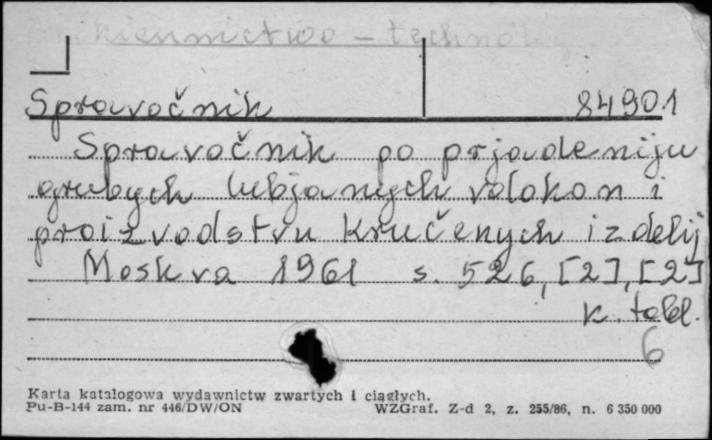 kiennictwo - technolog
Spravočnik 84901
Spravočnik po prjadeniju
grubych lubjanych volokon i
proizvodstvu kručenych izdelij
Moskva 1961 s. 526, [2], [2]
k. tabl.
6
Karta katalogowa wydawnictw zwartych i ciągłych.
Pu-B-144 zam. nr 446/DW/ON WZGraf. Z-d 2, z. 255/86, n. 6 350 000